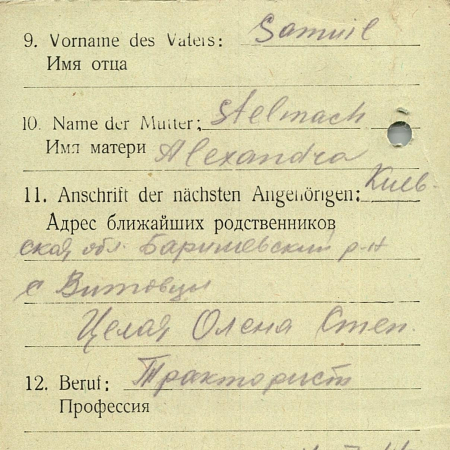 9. Vorname des Vaters: Samuil
Имя отца
10. Name der Mutter; Stelmach
Имя матери Alexandra
11. Anschrift der nächsten Angehörigen: Киев-
Адрес ближайших родственников
ская обл. Баришевский р-н
с Витовцы
Целая Олена Степ.
12. Beruf: Тракторист
Профессия